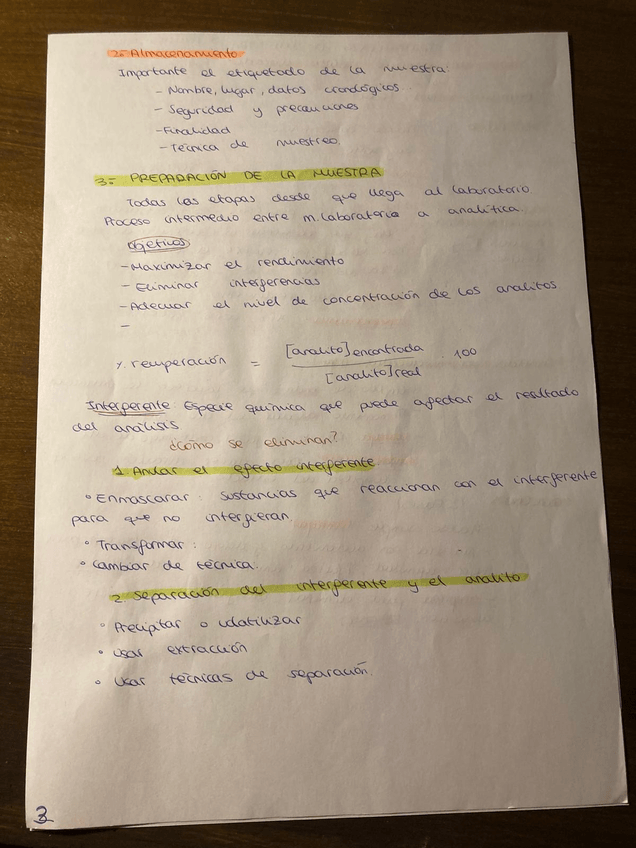 2.- Almacenamiento
Importante el etiquetado de la muestra:
- Nombre, lugar, datos cronológicos...
- Seguridad y precauciones
- Finalidad
- Técnica de muestreo.
3.- PREPARACIÓN DE LA MUESTRA
Todas las etapas desde que llega al laboratorio.
Proceso intermedio entre m. laboratorio a analítica.
Objetivos
- Maximizar el rendimiento
- Eliminar interferencias
- Adecuar el nivel de concentración de los analitos
-
% recuperación = [analito] encontrada / [analito] real · 100
Interferente: Especie química que puede afectar el resultado
del análisis
¿Cómo se eliminan?
1. Anular el efecto interferente
° Enmascarar: sustancias que reaccionan con el interferente
para que no interfieran.
° Transformar:
° Cambiar de técnica.
2. Separación del interferente y el analito
° Precipitar o volatilizar
° Usar extracción
° Usar técnicas de separación.
3